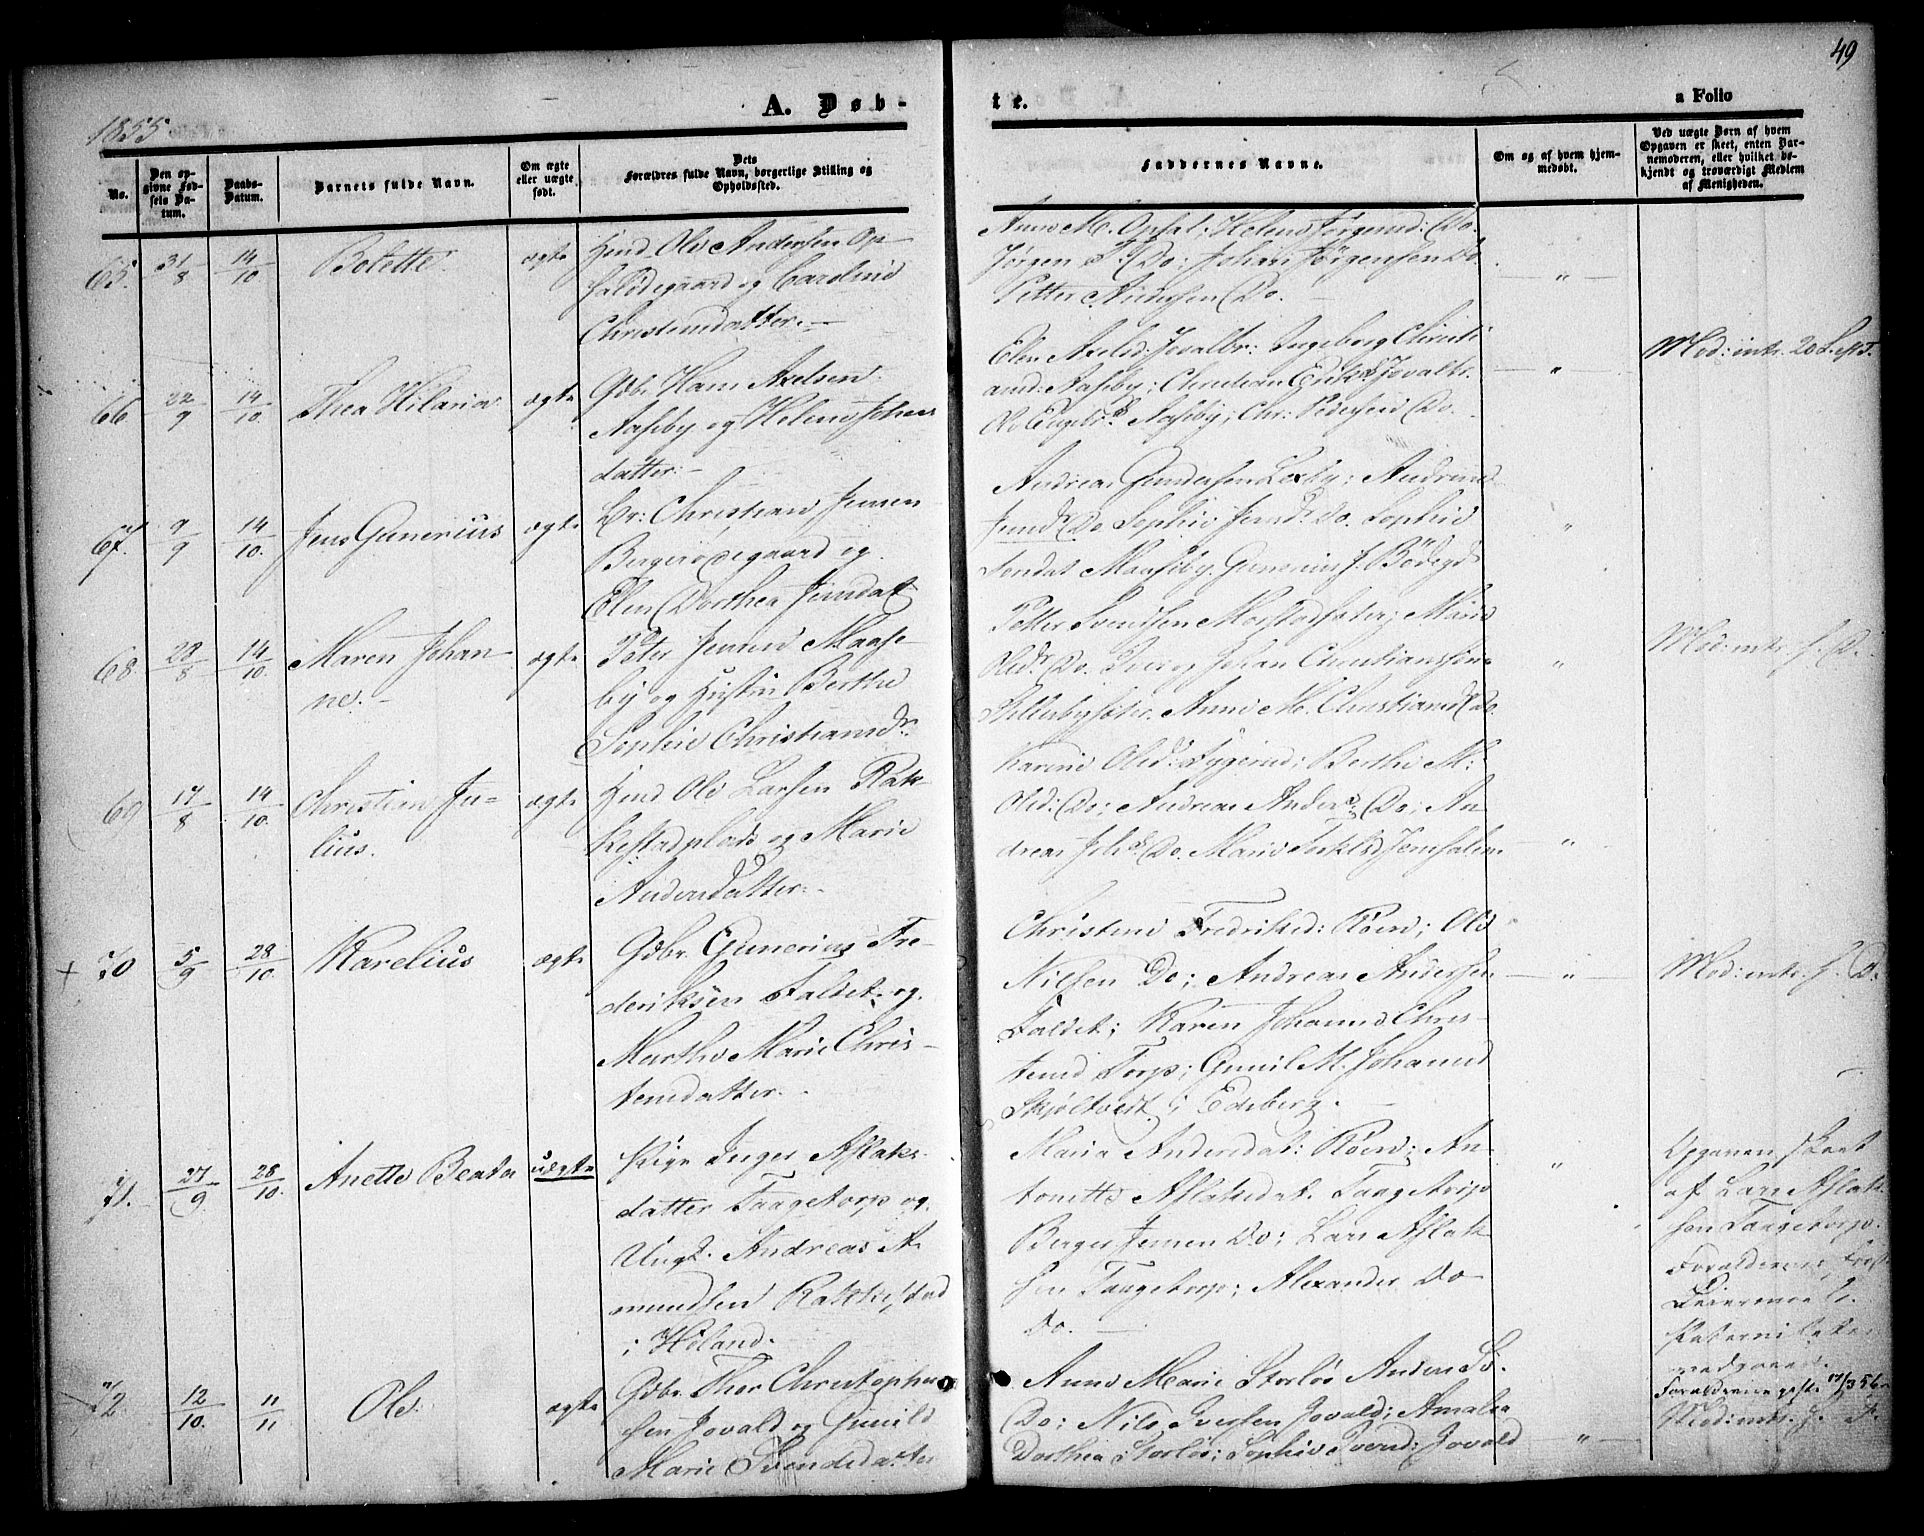 49
A. Døb-
te.
a Folio
1855
No.
Den op-
givne Fød-
sels Da-
tum.
Daabs-
Datum.
Barnets fulde Navn.
Om ægte
eller uægte
født.
Dets
Forældres fulde Navn, borgerlige Stilling og
Opholdssted.
Faddernes Navne.
Om og af hvem hjem-
medøbt.
Ved uægte Børn af hvem
Opgaven er skeet, enten Bar-
nemoderen, eller hvilket be-
kjendt og troværdigt Medlem
af Menigheden.
65. 31/8 14/10 Bolette. ægte
Huusd Ole Andersen Op-
saldegaard og Caroline
Christensdatter.
Anne M. Opsal: Helene Jørgensd: Do.
Jørgen Do: Johan Jørgensen Do.
Petter Andersen Do.
66. 22/9 14/10 Thea Hilaria ægte
Gdbr. Hans Axelsen
Aaseby og Helene Johans
datter.
Elen Axelsd: Jovaltr: Ingeborg Christi
ansd: Aaseby; Christian Eriks. Jovaltr.
Ole Engebr. Aaseby; Chr: Pedersen Do.
Mod: intr. 20 Sept.
67. 9/9 14/10 Jens Gunerius ægte
Br: Christian Jensen
Bergerødegaard og
Elen Dorthea Jensdat
Andreas Gundersen Lexby; Andrine
Jensdr Do. Sophie Jensdr. Do. Sophie
Maaseby. Gunerius J. Bødegd
68. 29/8 14/10 Maren Johan-
ne.- ægte
Peter Jensen Maase-
by og Hustru Berthe
Sophie Christiansdr.
Petter Svendsen; Marie
Olsdr. Do. Iver og Johan Christianssen
Anne M. Christiansd Do.
Mod: intr. s. D.
69 17/8 14/10 Christian Ju-
lius. ægte
Huusd Ole Larsen Rak-
kestadplads og Marie
Andersdatter.
Karine Olsd: Bygerud; Berthe M:
Olsd: Do; Andreas Anders. Do; An-
dreas Do. Marie Jerusalem
70 5/9 28/10. Karelius ægte
Gdbr. Gunerius Fre-
deriksen Faldet og
Marthe Marie Chris-
tensdatter.
Christine Fredriksd: Röers; Ole
Nilsen Do; Andreas Andersen
Faldet; Karen Johanne Chris-
tensd Torp; Gunil M. Johansd
Skjøltvedt i Edsberg.
Mod: intr. s. D.
71. 27/9 28/10. Anette Beata uægte
Pige Inger Aslaks-
datter Taagetorp og
Ungk. Andreas A-
mundsen Rakkestad
i Höland.
Maria Andersdat: Röers; An-
tonette Aslaksdat. Taagetorp
Berger Jensen Do; Lars Aslak
sen Taagetorp; Alexander Do
Do.
Opgaven skeet
af Lars Aslak-
sen Taagetorp.
Forældrenes
Leiermaal.
72 12/10. 11/11 Ole. ægte
Gdbr. Thor Christopher
sen Jovald og Gunild
Marie Svendsdatter
Anne Marie Storløs Anders
Do; Nils Iversen Jovald; Amalia
Dorthea Storløs; Sophie Iversd: Jovald
Forældrene gifte 17/3 56
Mod: intr. s. D.